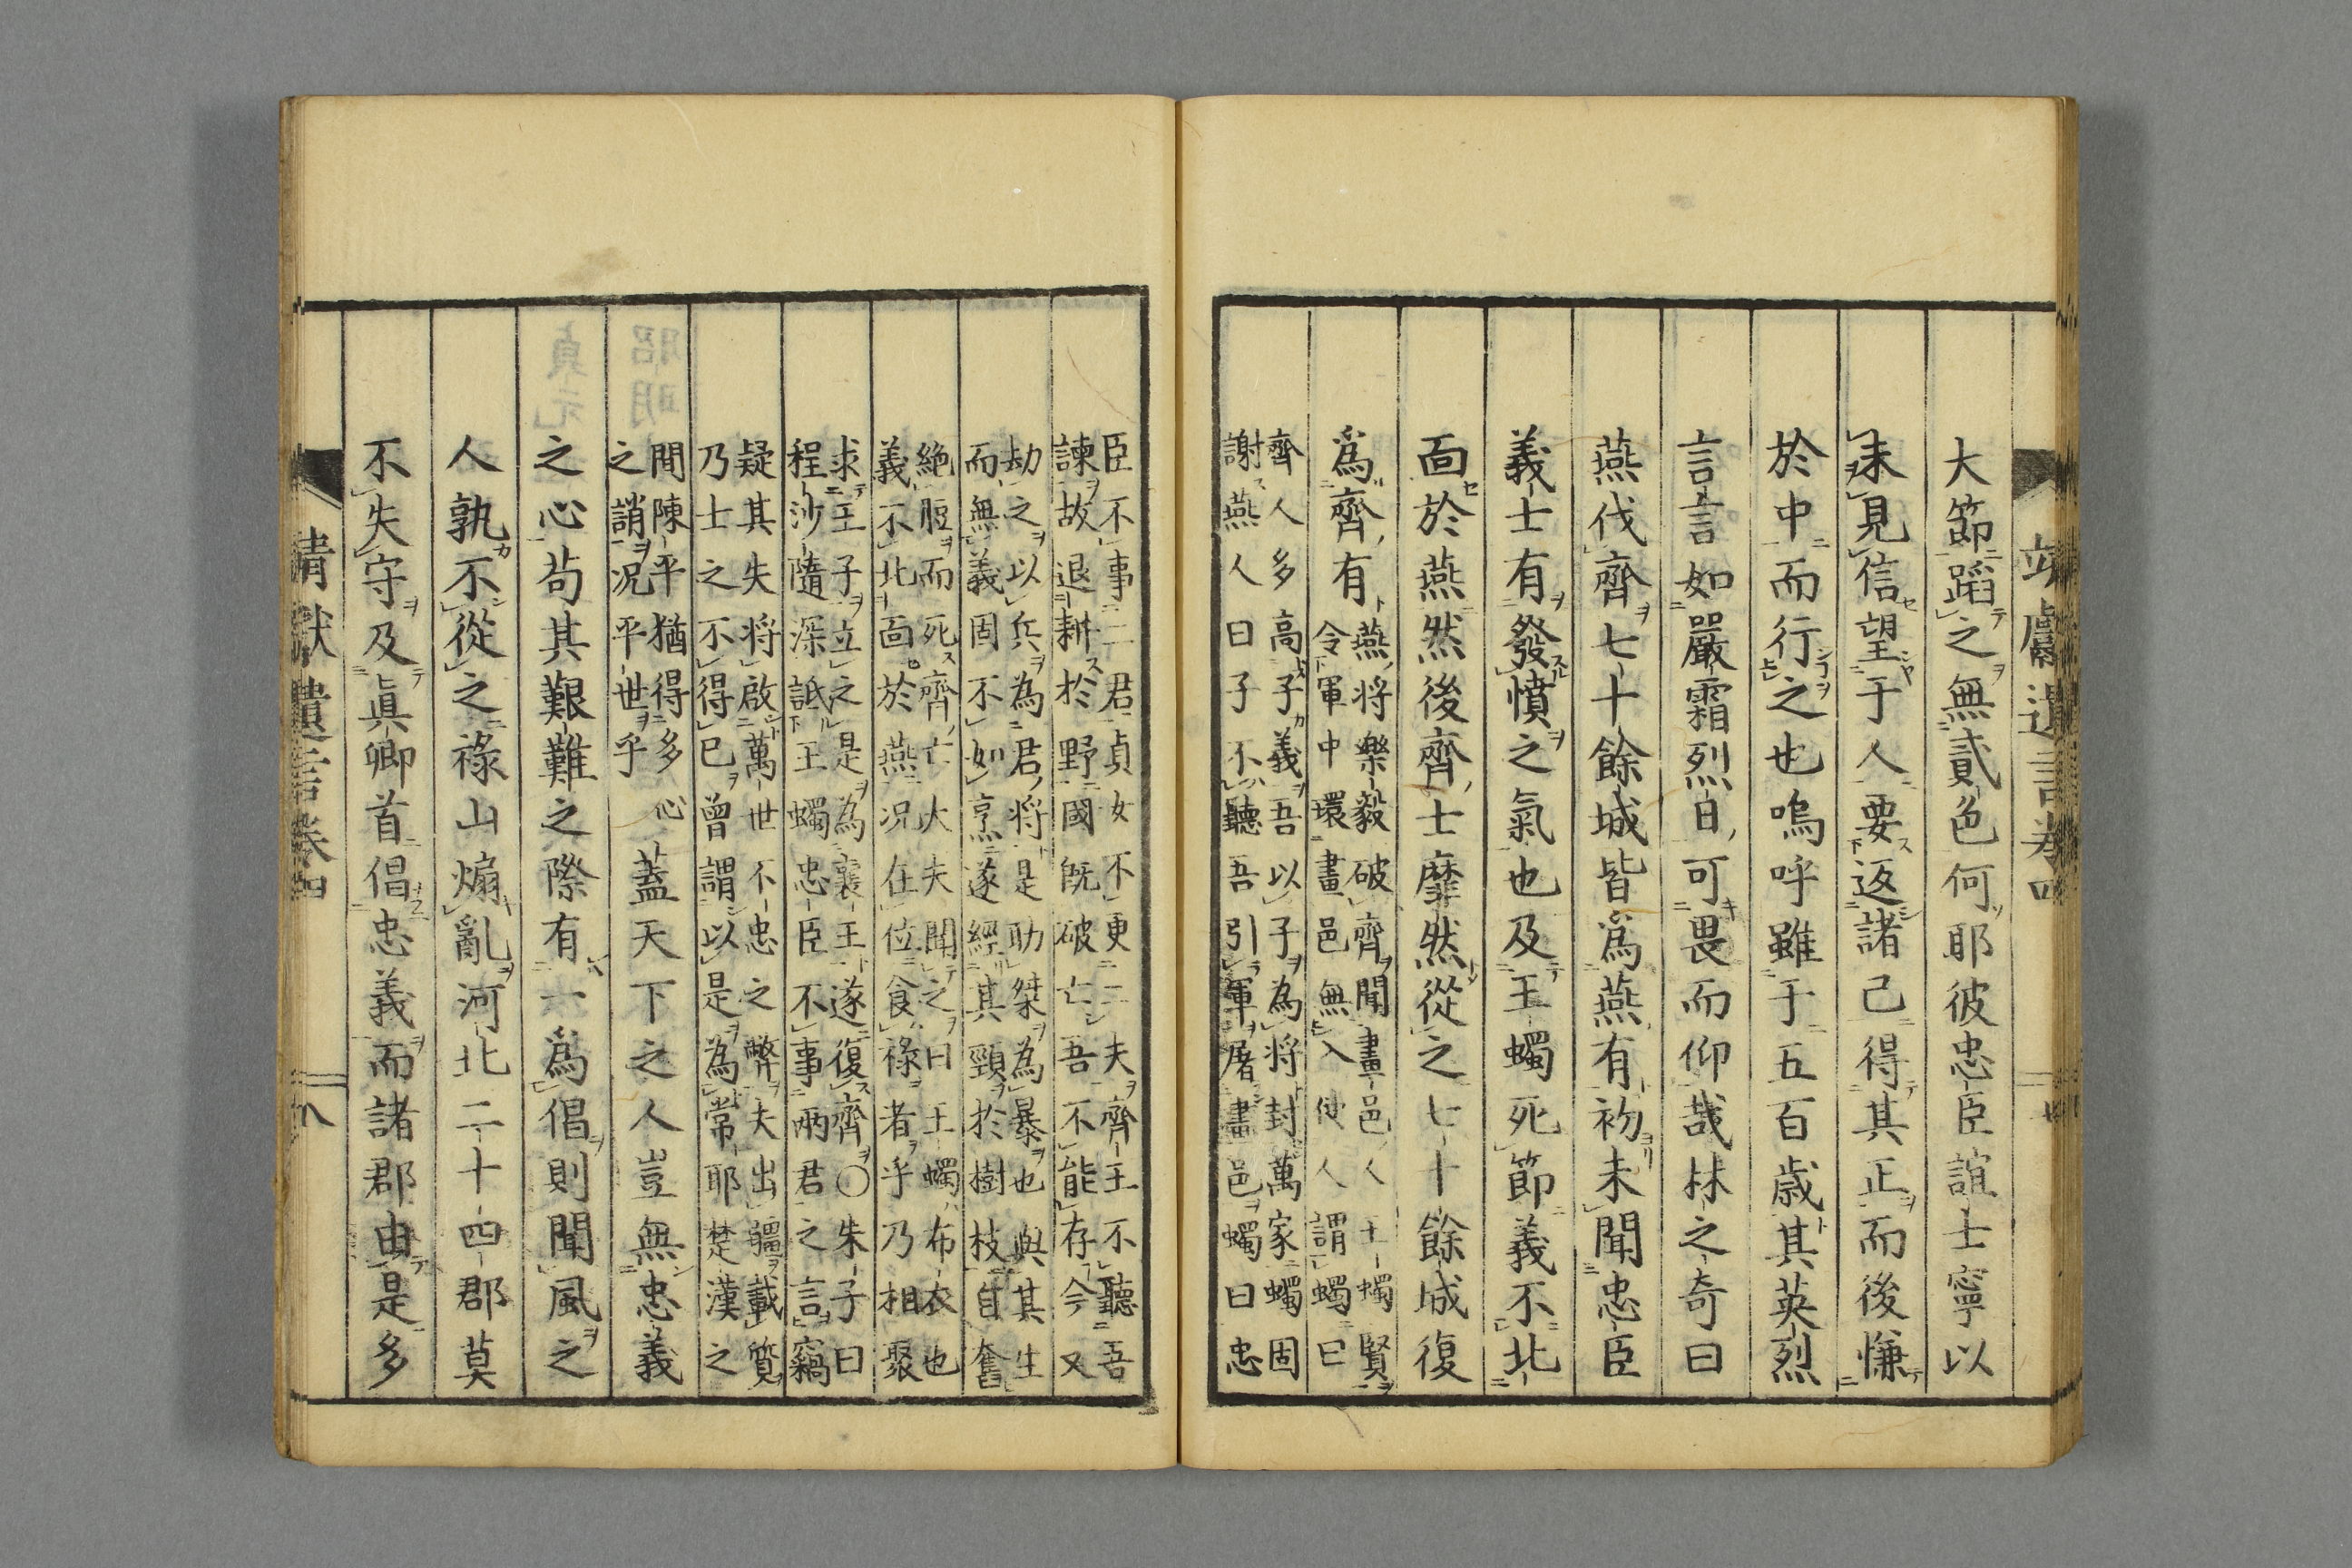 靖獻遺言卷四
大節蹈之無貳色何耶彼忠臣誼士寧以
未見信望于人要返諸己得其正而後慊
於中而行之也嗚呼雖于五百歳其英烈
言言如嚴霜烈日可畏而仰哉林之奇曰
燕伐齊七十餘城皆爲燕有初未聞忠臣
義士有發憤之氣也及王蠋死節義不北
面於燕然後齊士靡然從之七十餘城復
爲齊有
燕將樂毅破齊聞畫邑人王蠋賢
令軍中環畫邑無入使人謂蠋曰
齊人多高子義吾以子為將封萬家蠋固
謝燕人曰子不聽吾引軍屠畫邑蠋曰忠
臣不事二君貞女不更二夫齊王不聽吾
諫故退耕於野國既破亡吾不能存今又
劫之以兵為君將是助桀為暴也與其生
而無義固不如烹遂經其頸於樹枝自奮
絶脰而死齊亡大夫聞之曰王蠋布衣也
義不北面於燕况在位食祿者乎乃相聚
求王子立之是為襄王遂復齊〇朱子曰
程沙隨深詆王蠋忠臣不事兩君之言竊
疑其失將啟萬世不忠之弊夫出疆載質
乃士之不得已曾謂以是為常耶楚漢之
間陳平猶得多心
之誚况平世乎
蓋天下之人豈無忠義
之心茍其艱難之際有一爲倡則聞風之
人孰不從之祿山煽亂河北二十四郡莫
不失守及眞卿首倡忠義而諸郡由是多
靖獻遺言卷四
八